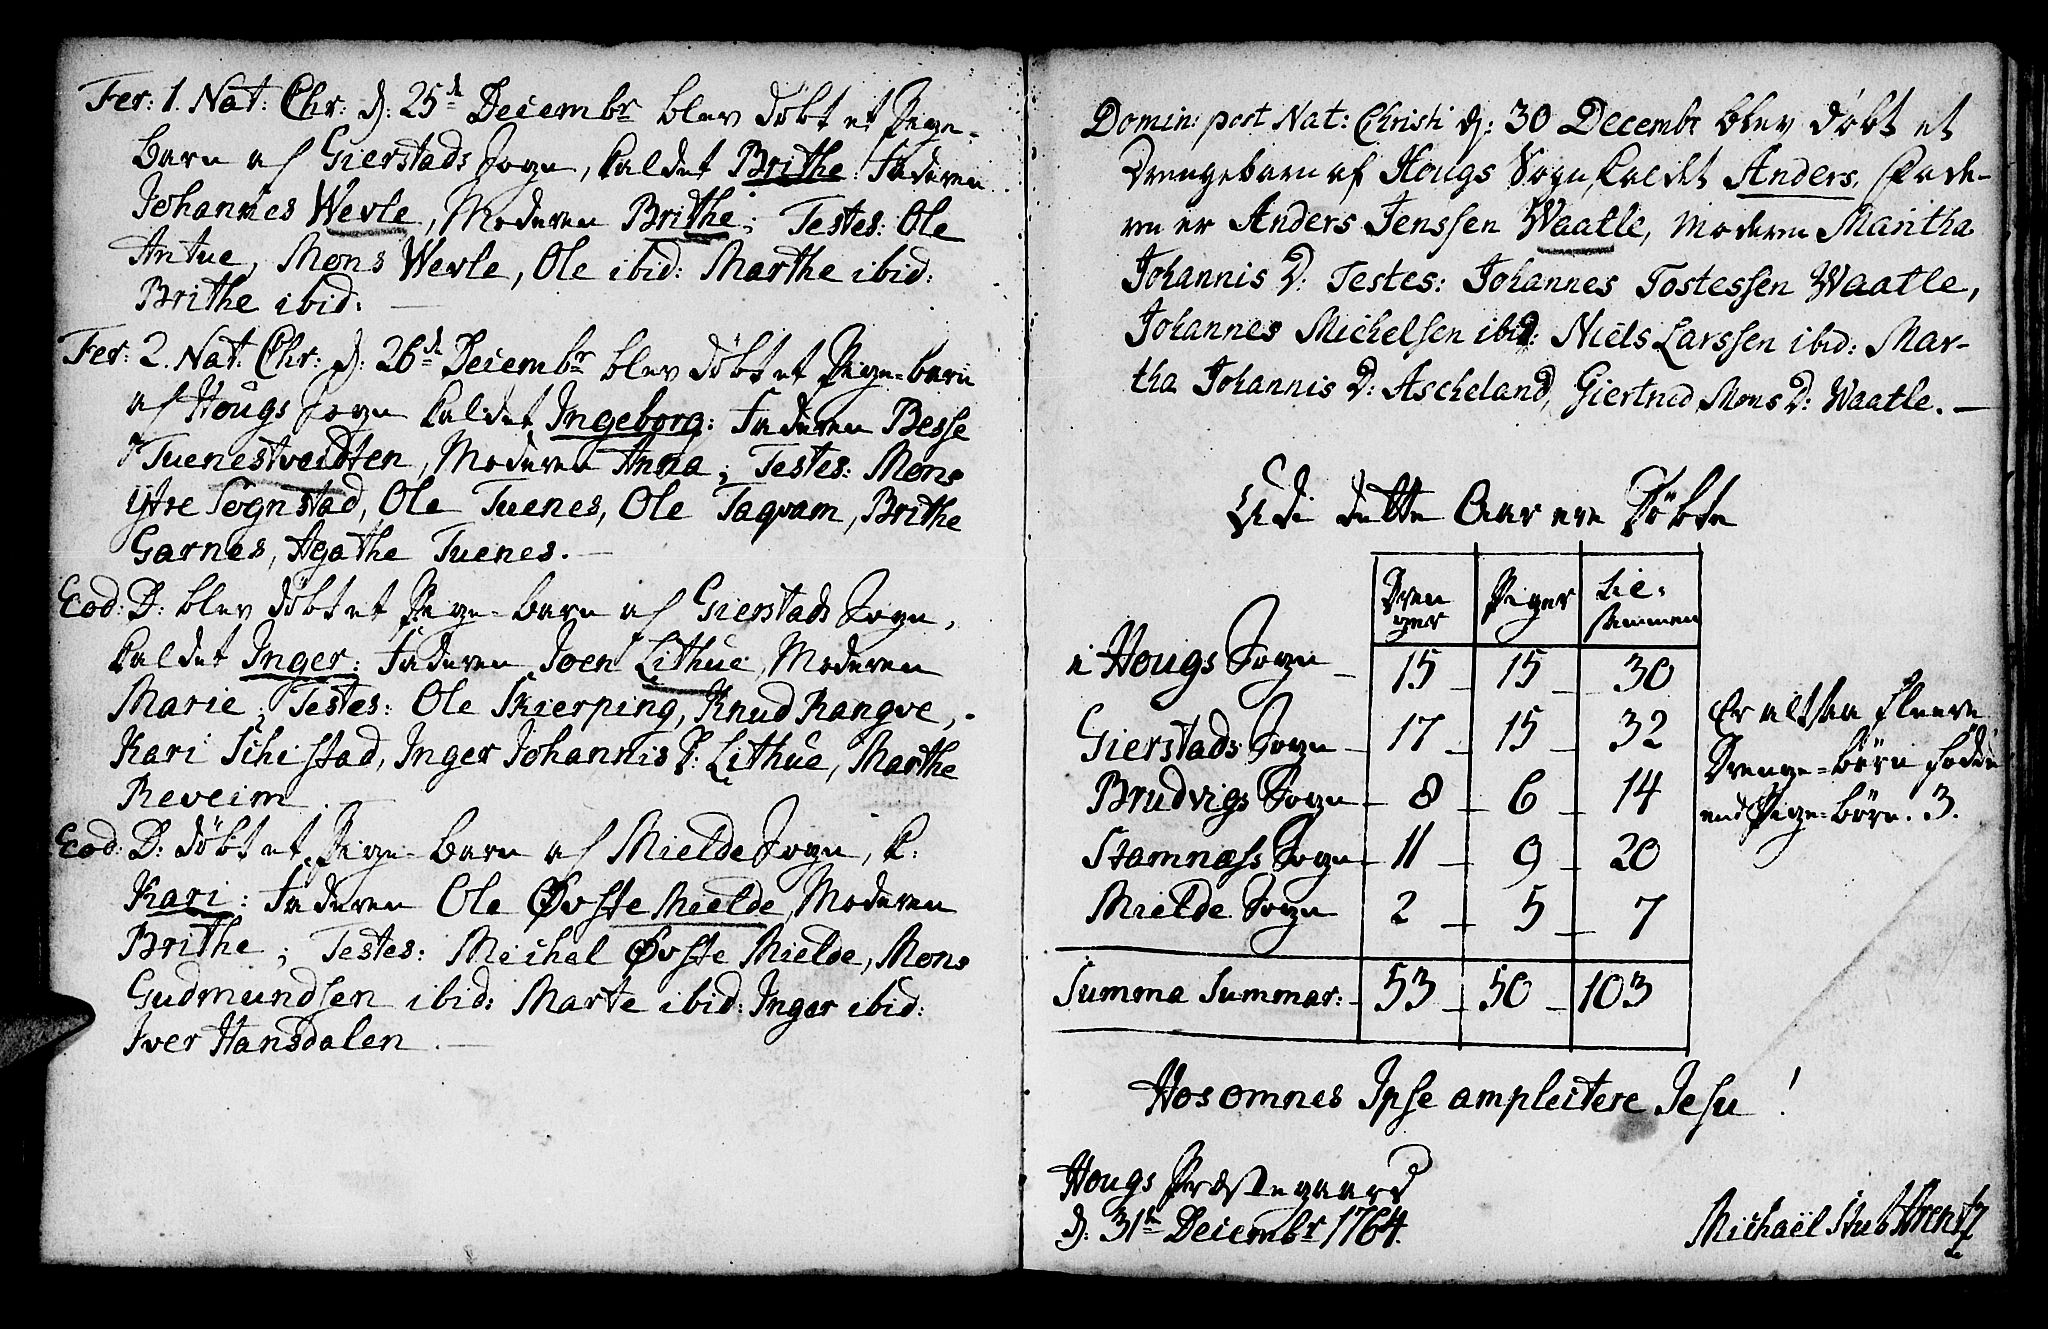 Fer: 1. Nat: Chr: d: 25de Decembr blev döbt et Pige-
barn af Gierstads Sogn, kaldet Brithe Faderen
Johannes Wevle, Moderen Brithe; Testes: Ole
Antue, Mons Wevle, Ole ibid: Marthe ibid:
Brithe ibid: —
Fer: 2. Nat: Chr: d: 26de Decembr blev döbt et Pige-barn
af Hougs Sogn kaldet Ingeborg: Faderen Besse
Tuenestveidten, Moderen Anna; Testes: Mons
ÿtre Sognstad, Ole Tuenes, Ole Taqvam, Brithe
Garnes, Agathe Tuenes. —
Eod: D: blev döbt et Pige-barn af Gierstads Sogn,
kaldet Inger: Faderen Joen Lithue, Moderen
Marie; Testes: Ole Skierping, Knud Rangve,
Kari Schistad, Inger Johannis D: Lithue, Marthe
Reveim.
Eod: D: döbt et Pige-barn af Mielde Sogn, k:
Kari: Faderen Ole Øvste Mielde, Moderen
Brithe; Testes: Michel Øvste Mielde, Mons
Gudmundsen ibid: Marte ibid: Inger ibid:
Iver Hansdalen. —
Domin: post Nat: Christi d: 30 Decembr blev döbt et
Drengebarn af Hougs Sogn, kaldet Anders, Fade-
ren er Anders Jenssen Waatle, Moderen Maritha
Johannis D: Testes: Johannes Tostessen Waatle,
Johannes Michelsen ibid: Niels Larssen ibid: Mar-
tha Johannis D: Ascheland, Giertrud Mons D: Waatle. —
Udi dette Aar ere Döbte
Dren
ger Piger Tie-
sammen
i Hougs Sogn 15 15 30
Gierstads Sogn 17 15 32
Brudvigs Sogn 8 6 14
Stamnæss Sogn 11 9 20
Mielde Sogn 2 5 7
Summa Summar: 53 50 103
Er altsaa fleere
Drenge-börn fødde
end Pige-börn. 3.
Hos omnes Ipse amplectere Jesu!
Hougs Præstegaard
d: 31te Decembr 1764.
Michaël Stub Arentz